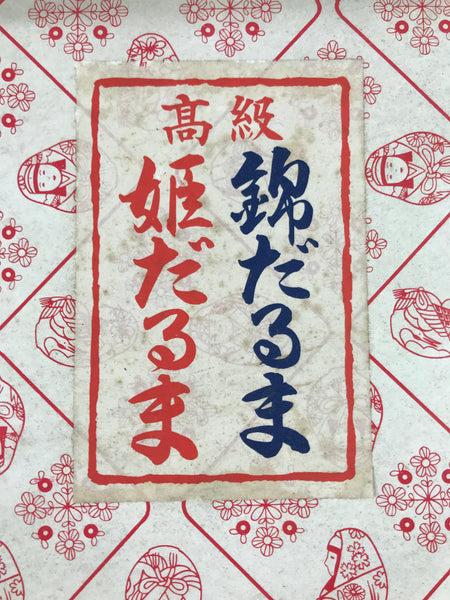 髙級
錦だるま
姫だるま